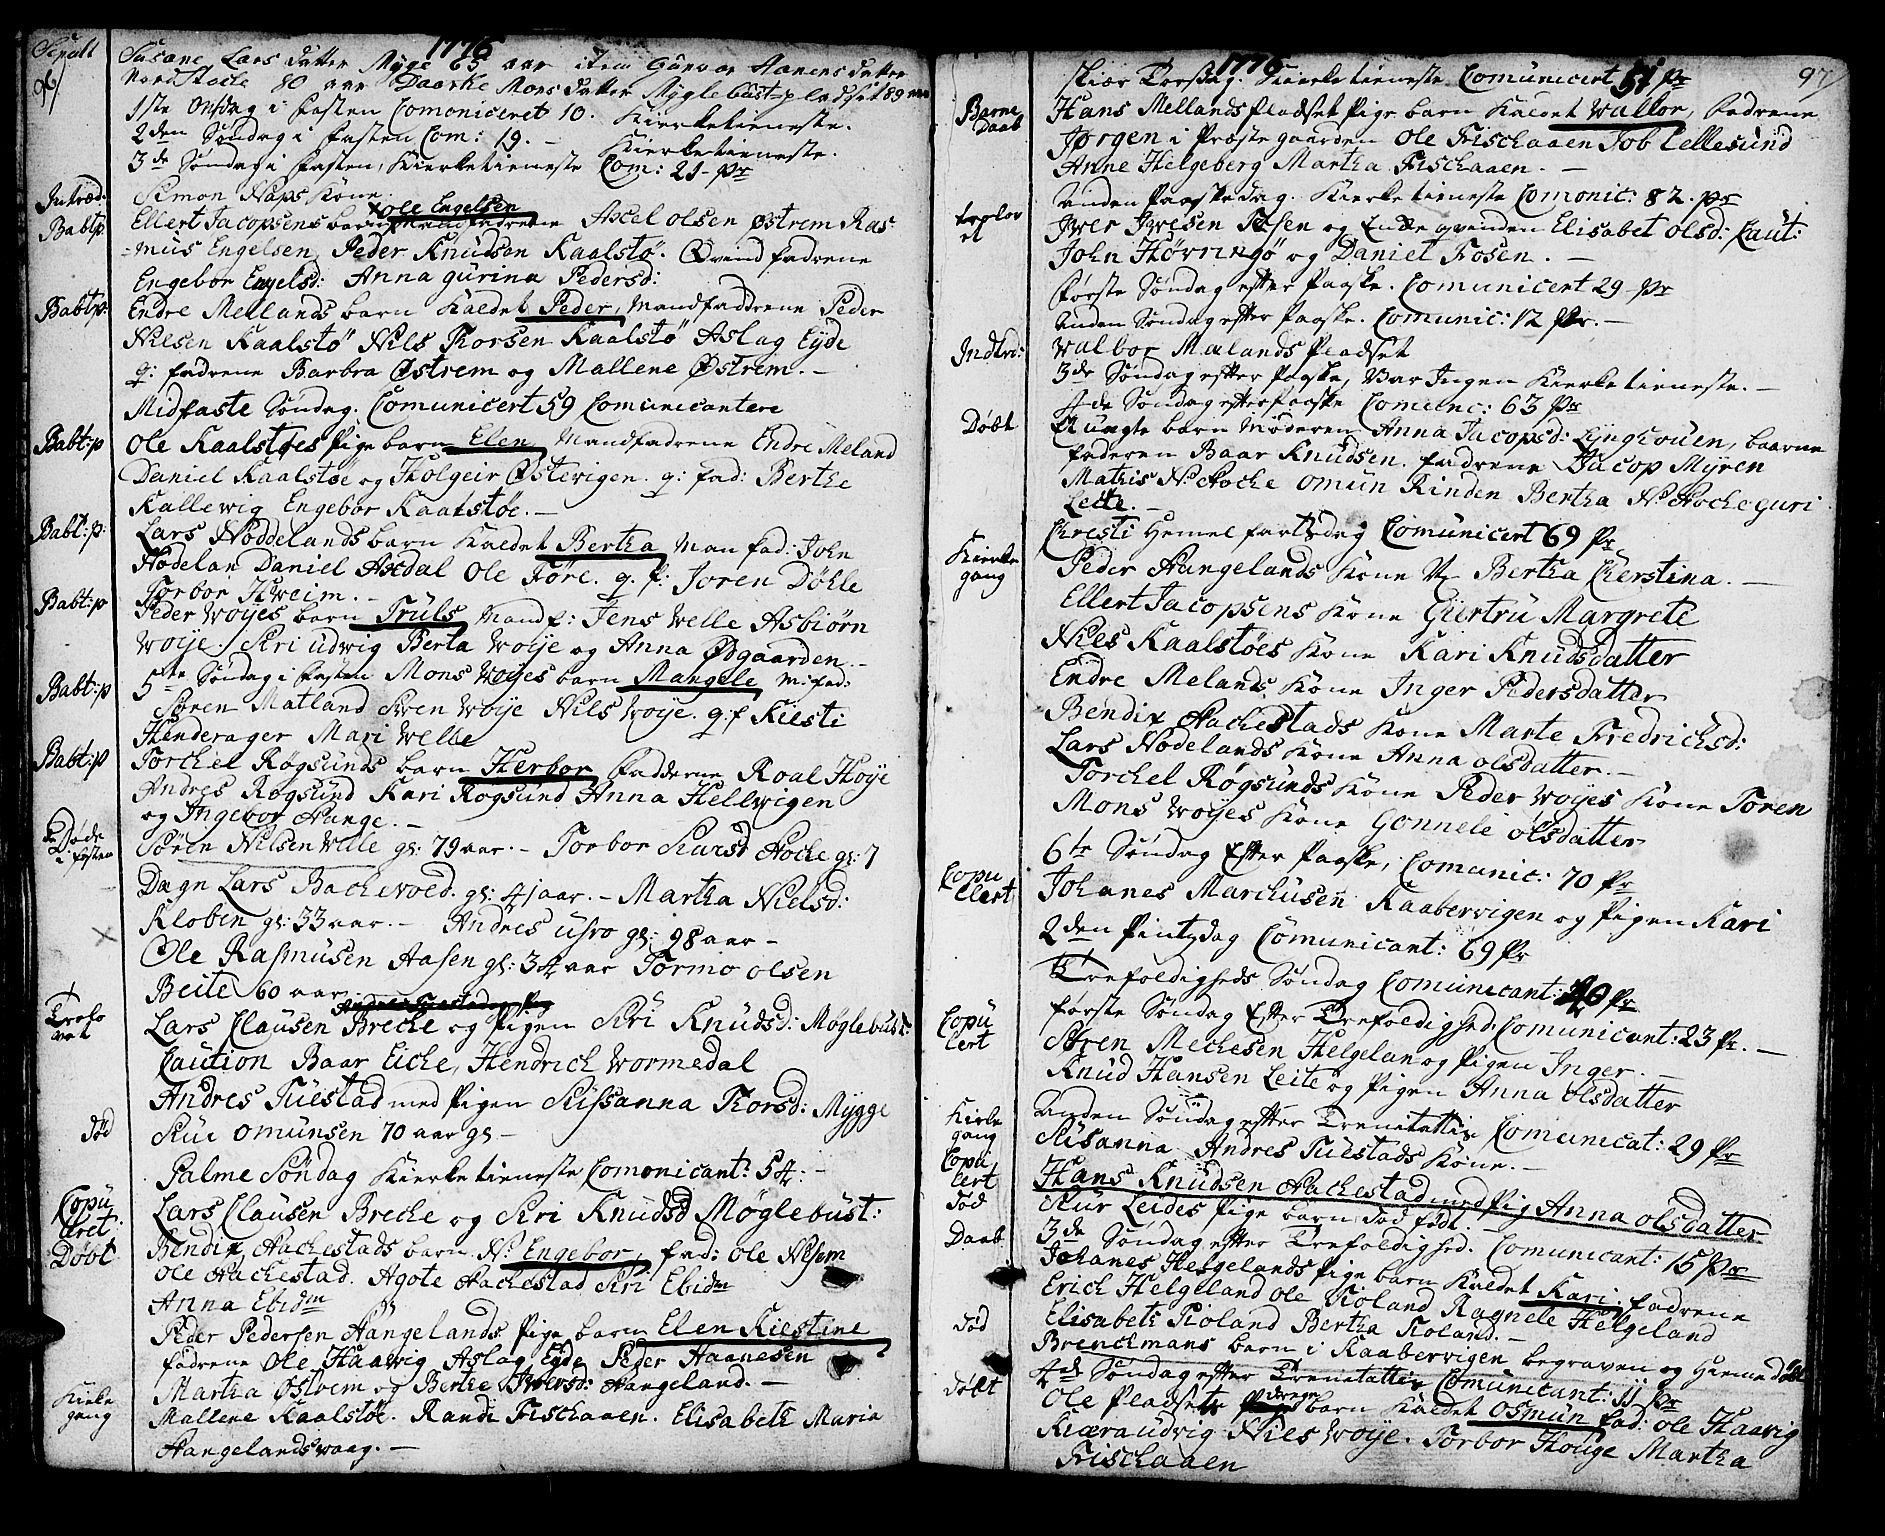 1776
Sepult Susane Lars datter Myge 65 aar item Gunvor Hanens datter
Nordstocke 80 aar Daarke Mons datter Myglebust pladset 89 aar
1ste Onsdag i fasten Comoniceret 10. Kierketieneste.
2den Søndag i fasten Com: 19. - Kierketieneste.
3de Søndag i fasten, Kierketieneste Com: 21- Pr
Intræd: Simon Naps Kone.
Ole Engelsen
Babt:p Ellert Jacopsens barn Mandfadrene Axcel olsen Østrem Ras-
-mus Engelsen, Peder Knudsen Kaalstø. Qvend fadrene
Engebor Engelsd: Anna gurina Pedersd:
Babt:p: Endre Mellands barn Kaldet Peder, Mandfaddrene Peder
Nilsen Kaalstø Nils Thorsen Kaalstø Aslag Eyde
q: fadrene Barbra Østrem og Mallene Østrem. -
Midfaste Søndag. Comunicert 59 Comunicantere
Babt:p Ole Kaalstøes Pige barn Elen Mandfadrene Endre Meland
Daniel Kaalstøe og Tholgeir Østevigen. q: fad: Berthe
Kallewig Engebor Kaalstøe. -
Babt:p. Lars Noddelands barn Kaldet Bertha Man fad: John
Nodelan Daniel Axdal Ole Føre. q. f: Joren Døhle
Torbor Hweim. -
Babt:p Peder Woyes barn Truls Mandf: Jens Welle Asbiørn
Woije. Siri udwig Berta Woije og Anna Ødgaarden. -
Babt:p 5te Søndag i fasten Mons Woyes barn Mangele M: fad:
Søren Matland Swen Woije Nils Woije. q: f Kiesti
Henderager Mari Welle
Babt:p Torchel Røgsunds barn Herbor Fadderne Roal Høye
Andres Røgsund Kari Røgsund Anna Hellwigen
og Ingebor Hauge. -
Døde i fasten Søren Nilsen Welle gl: 79 aar. - Torbor Siursd Hocke gl: 7
Dagn Lars Bachevold. gl: 41 aar. - Martha Nielsd:
Kloben gl: 33 aar. - Andres usro gl: 98 aar -
Ole Rasmusen Aasen gl: 34 aar Tormo olsen
Beite 60 aar -
Trolovet Lars Clausen Breche og Pigen Siri Knudsd: Møglebust:
Caution Baar Eiche, Hendrich Wormedal
Andres Tuestad med Pigen Sussanna Thorsd: Mygge
død Siur omunsen 70 aar gl -
Palme Søndag Kierketieneste Comonicant: 54: -
Copuleret: Lars Clausen Breche og Siri Knudsd Møglebust:
Døbt Bendix Hackestads barn N: Engebor, fad: ole Nesem
Ole Hackestad. Agote Hackestad Siri Ebidm
Anna Ebidm
Peder Pedersen Hangelands Pige barn Elen Kiestine
fadrene Ole Haawig Aslag Eyde Peder Haanesen
Martha Østrem og Berthe Iwersd: Hangeland. -
Kierkegang Mallene Kaalstøe. Randi Fischaaen. Elisabeth Maria
Hangelandsvaag. -
1776
97
Skiær Torsdag. Kierketieneste Comunicert 51 Pr
Barne Daab Hans Mellands Pladset Pige barn Kaldet Wallor, fadrene
Jørgen i Præstegaarden Ole Fischaaen Job Lellesund
Anne Helgeberg Martha Fischaaen. -
Anden Paaskedag. Kierketieneste Comonic: 82. pr
troplovet Iver Iwesen Fosen og Enke qvenden Elisabet olsd: Caut:
John Høvringø og Daniel Fosen. -
Første Søndag efter Paaske. Comunicert 29- Pr
Anden Søndag efter Paaske. Comunic: 12 Pr. -
Indtrd: Walbor Mælands Pladset
3de Søndag efter Paaske, Var Ingen Kierketieneste. -
4de Søndag efter Paaske Comunc: 63 Pr
Døbt Et uægte barn Moderen Anna Jacopsd: Lynghouen, baarne
faderen Baar Knudsen. fadrene Jacop Myren
Mathis N: Hocke Omun Rinden Bertha N: Hocke guri
Leite. -
Christi Hemel fartsdag Comunicert 69 Pr
Kierkegang Peder Hangelands Kone N: Bertha Cherstina. -
Ellert Jacopsens Kone Giertru Margrete
Niels Kaalstøes Kone Kari Knudsdatter
Endre Melands Kone Inger Pedersdatter
Bendix Hackestads Kone Marte Fredrichsd:
Lars Nodelands Kone Anna olsdatter. -
Torchel Røgsunds Kone Peder Woyes Kone Toren
Mons Woyes Kone Gonnele olsdatter
6te Søndag Efter Paaske, Comunic: 70 Pr
Copulert Johanes Marchusen Kaabervigen og Pigen Kari
2den Pintzdag Comunicant: 69 Pr
Trefoldigheds Søndag Comunicant: 20 Pr
første Søndag Efter Trefoldighed. Comunicant: 23 Pr. -
Copulert Søren Mechesen Helgelan og Pigen Inger. -
Knud Hansen Leite og Pigen Anna olsdatter
Anden Søndag efter Trenetattis Comunicat: 29 Pr
Kirkegang Susanna Andres Tuestads Kone. -
Copulert Hans Knudsen Hackestad med Pig Anna olsdatter
død Siur Leides Pige barn død født. -
3de Søndag efter Trefoldighed. Comunicant: 15 Pr
Daab Johanes Helgelands Pige barn Kaldet Kari. fadrene
Erich Helgeland Ole Kioland Ragnele Helgeland
Elisabeth Kioland Bertha Kioland. -
død Brenckmans barn i Kaabervigen begraven og hieme døbt
4de Søndag efter Trenetattis Comunicant: 11 Pr
døbt Ole Pladsets drenge barn Kaldet Osmun fad: ole Haavig
Kiæra udvig Niels Woije. Torbor Houge Martha
Fischaaen